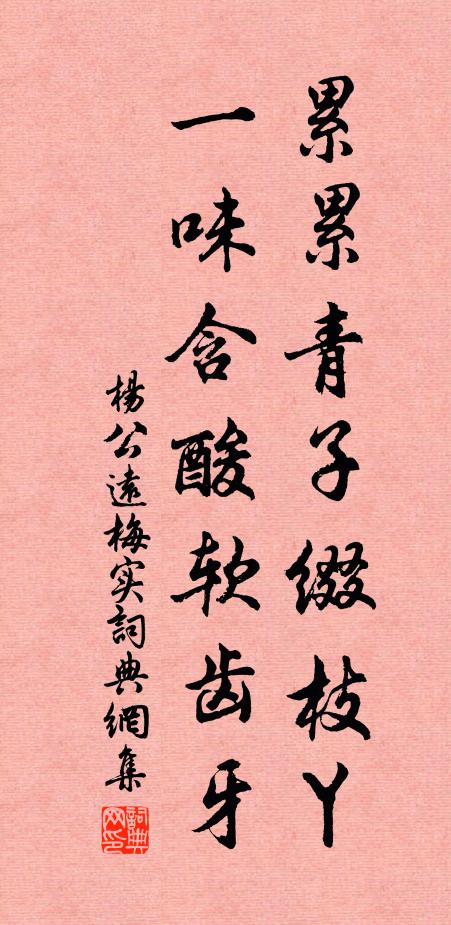 累累青子缀枝丫
一味含酸软齿牙
杨公遠梅实詞典網集
詞典网印